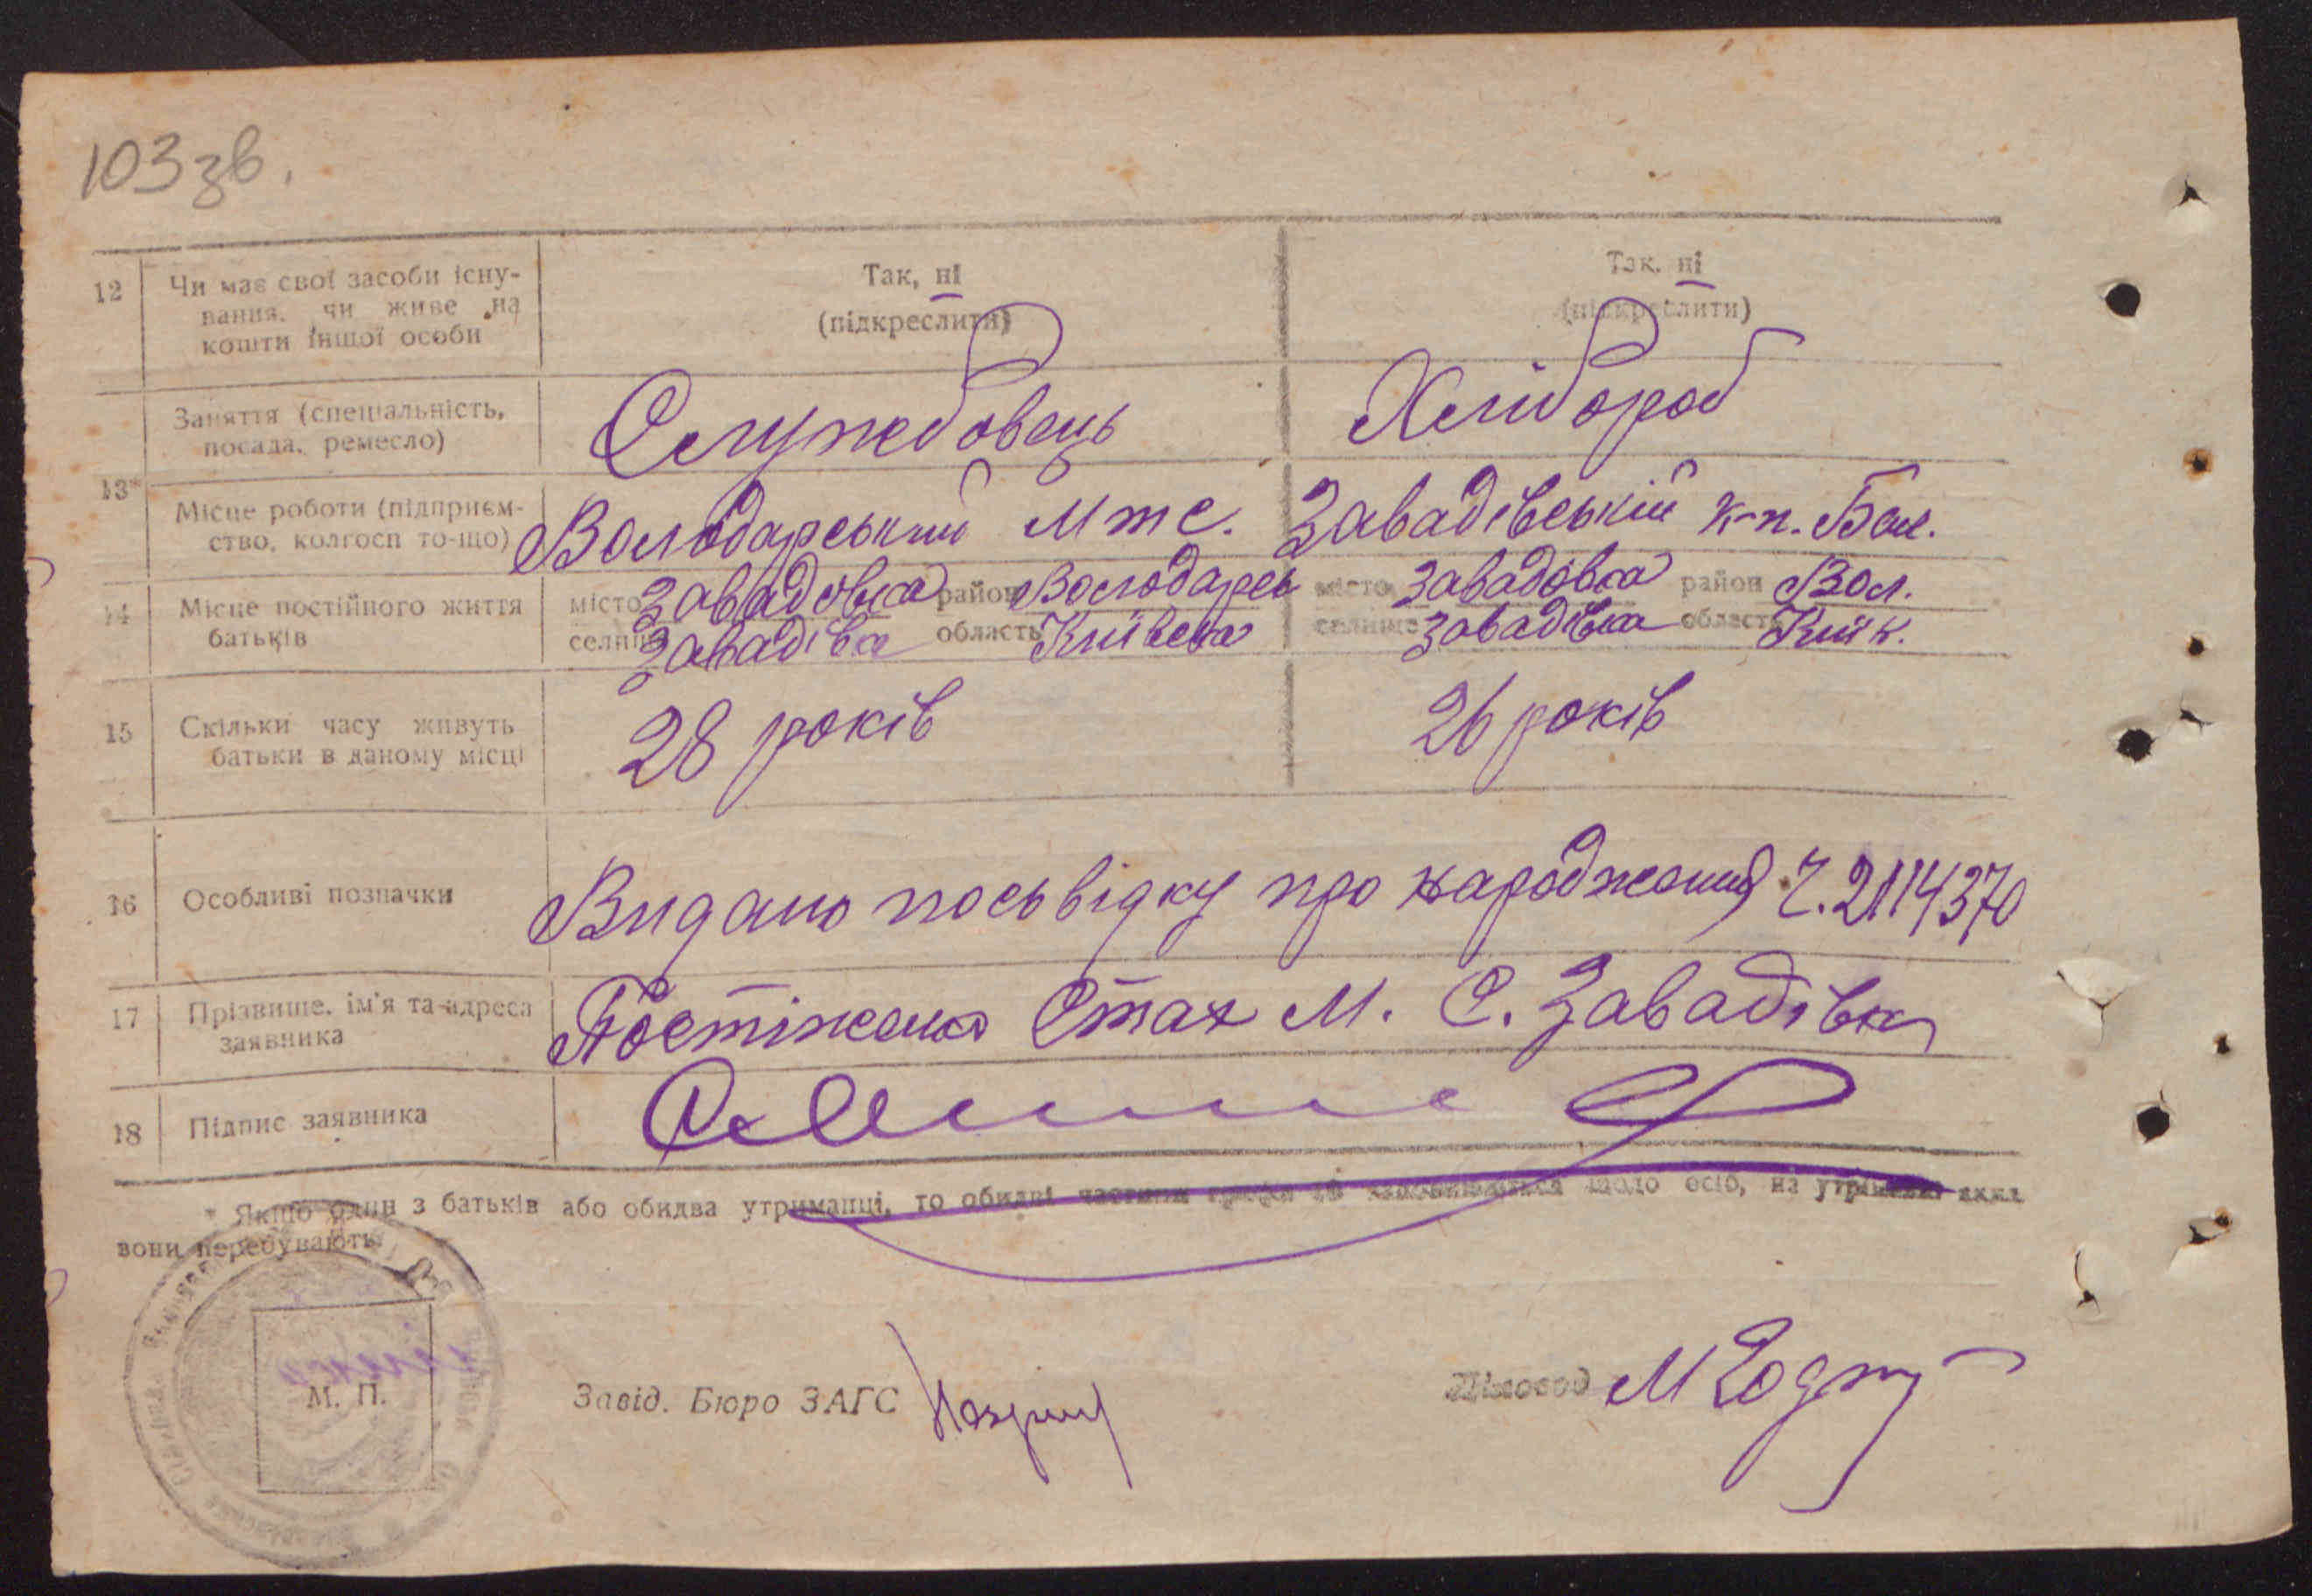 103зв.
12 Чи має свої засоби існу- Так, ні Так, ні
вання, чи живе на (підкреслити) (підкреслити)
кошти іншої особи
Заняття (спеціальність, Службовець Хлібороб
посада, ремесло)
13*
Місце роботи (підприєм- Володарський Мтс. Завадівський к-п. Біл.
ство, колгосп то-що)
14 Місце постійного життя місто Завадовка район Володарськ місто Завадовка район Вол.
батьків селище Завадівка область Київська селище Завадівка область Київ.
15 Скільки часу живуть 28 років 26 років
батьки в даному місці
16 Особливі позначки Видано посьвідку про народження Ч. 2114370
17 Прізвище, ім'я та адреса Постіженко Стах М. С. Завадівка
заявника
18 Підпис заявника
* Якщо один з батьків або обидва утриманці, то обидві частини графи 13 заповнюються щодо осіб, на утриманні яких
вони перебувають.
М. П. Завід. Бюро ЗАГС Діловод